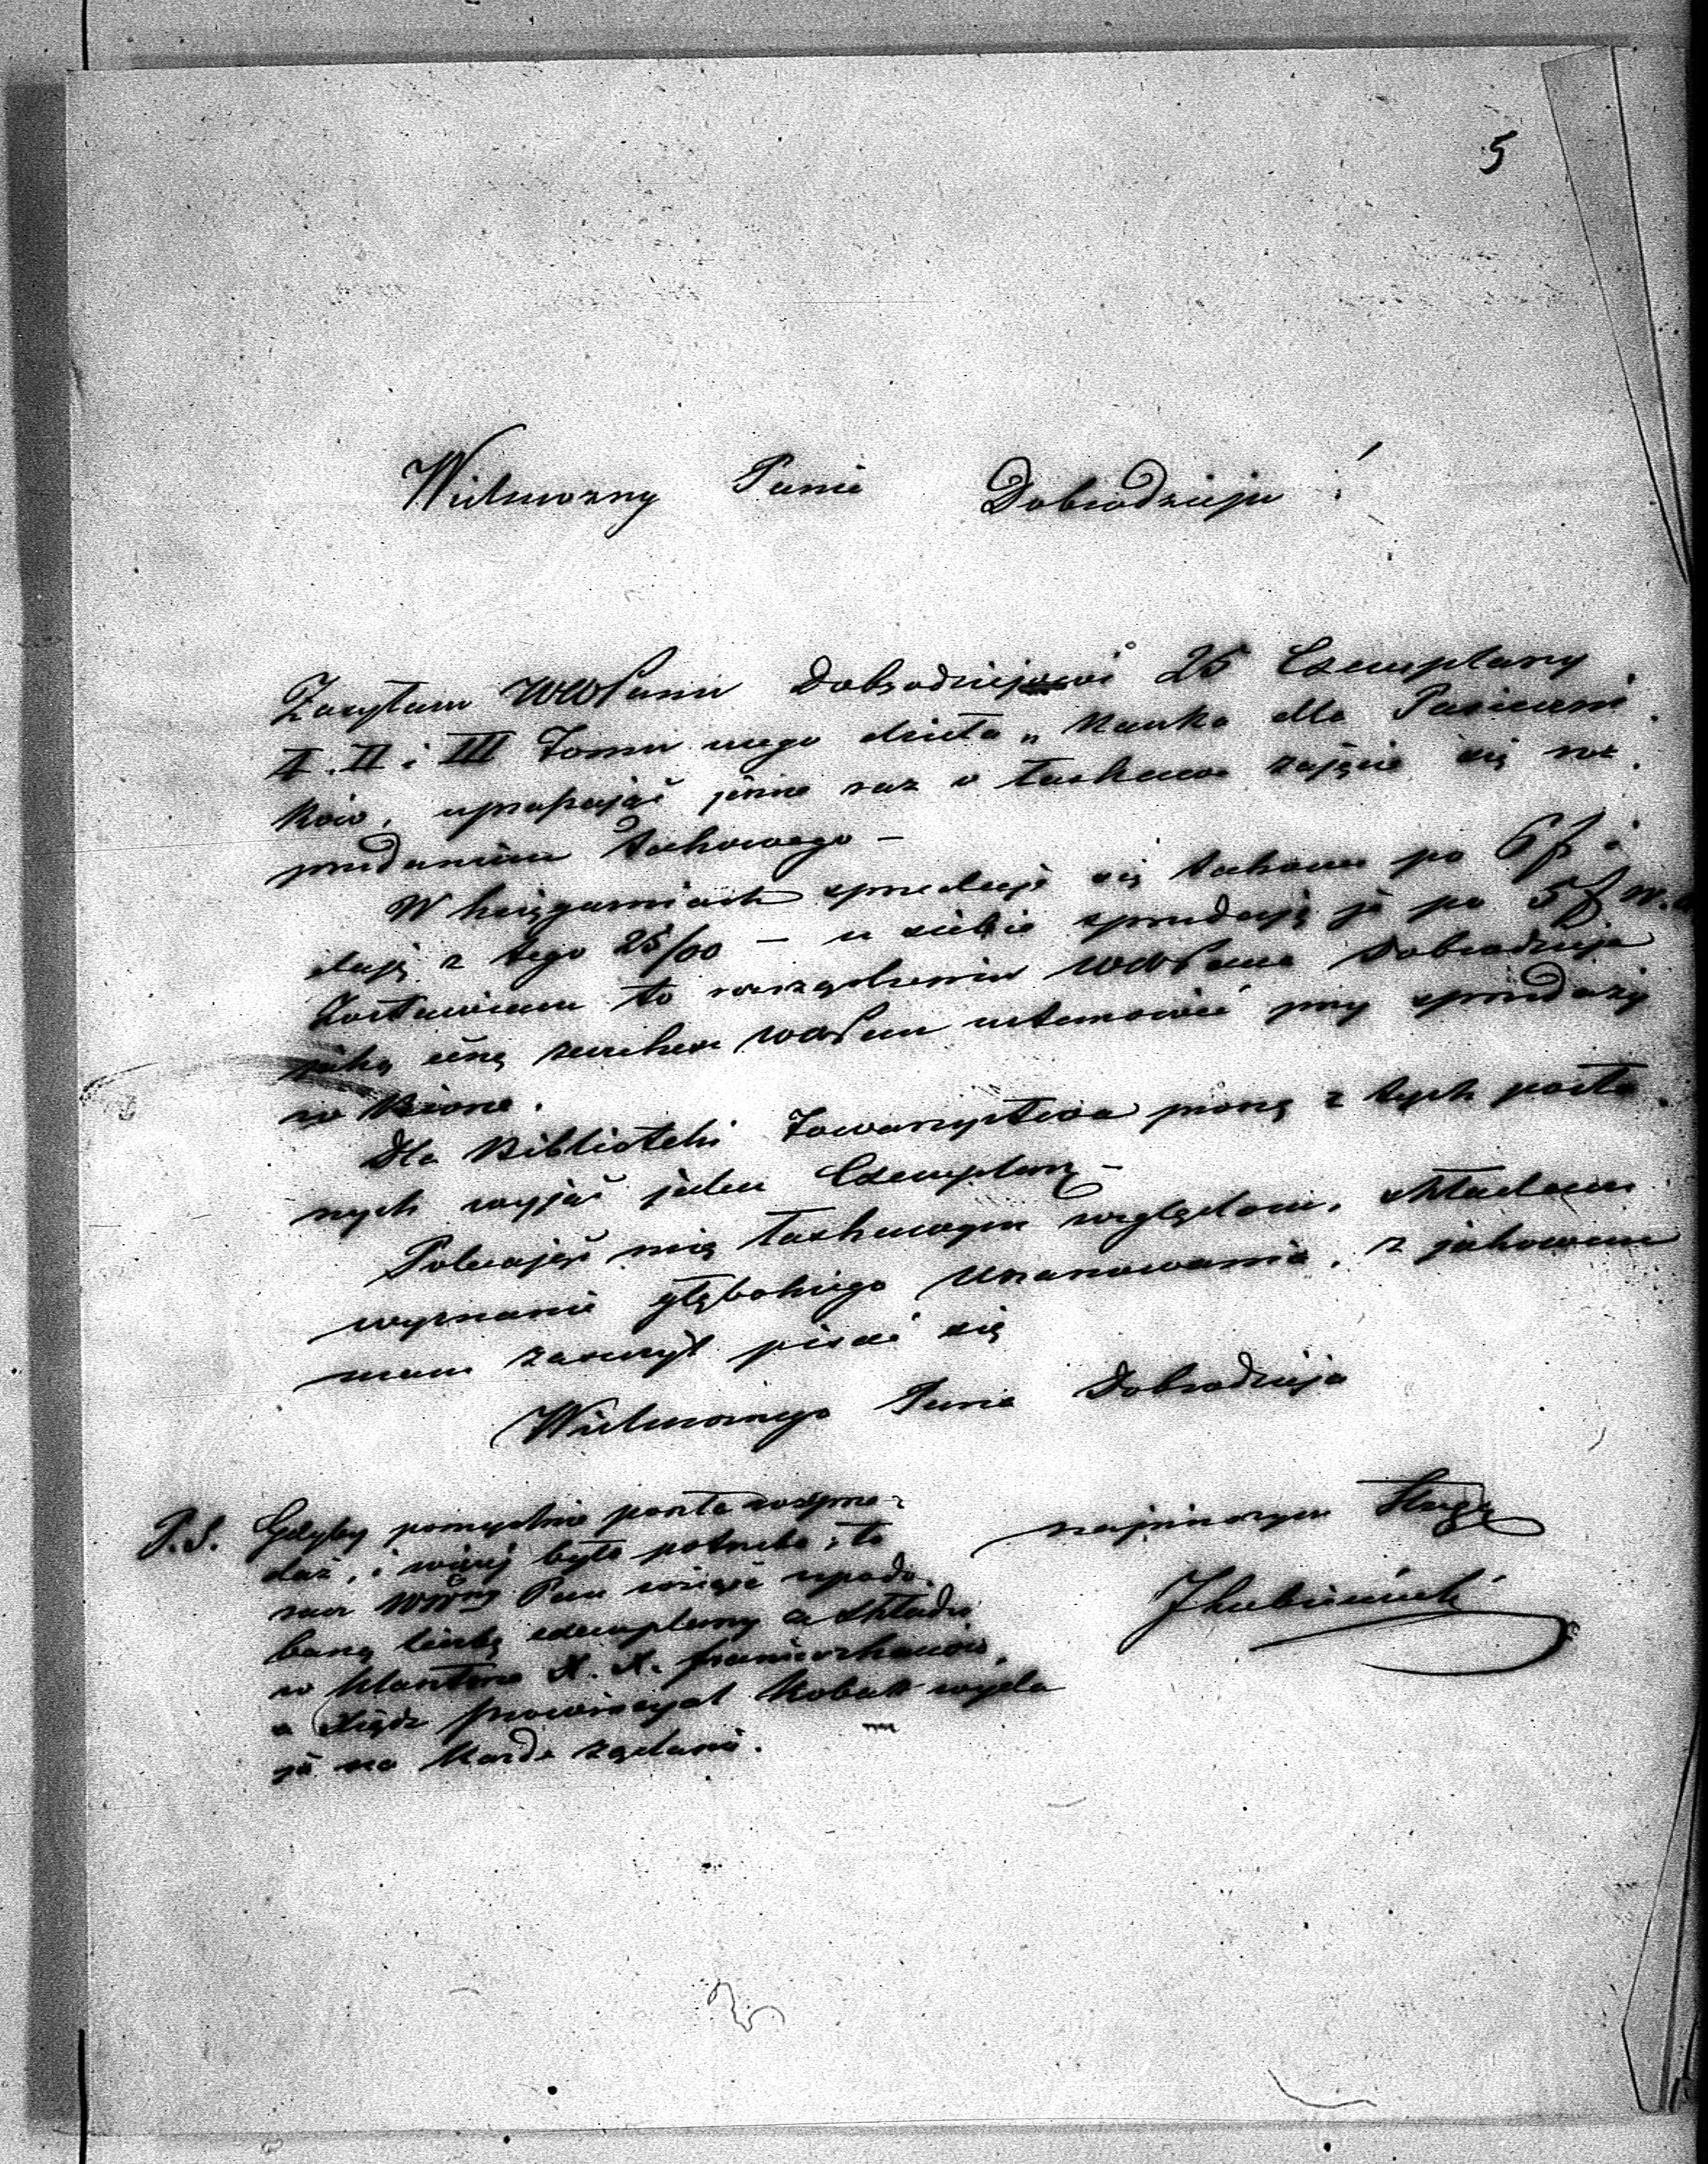 5
Wielmożny Panie Dobrodzieju!
Zasyłam WWPanu Dobrodziejowi 25 Exemplarzy
I. II i III Tomu mego dzieła „Nauka dla Pasieczni
ków, upraszając jeszcze raz o łaskawe zajęcie się roz
przedaniem takowego –
W księgarniach sprzedaje się takowe po 6 f i
dają z tego 25/00 – u siebie sprzedaję je po 5 f w.a
Zostawiam to rozrządzeniu WWPana Dobrodzieja
jaką cenę zechce WWPan ustanowić przy sprzedaży
w
Dla Biblioteki Towarzystwa proszę z tych posła
nych wyjąć jeden Exemplarz –
Polecając się łaskawym względom, składam
wyznanie głębokiego uszanowania, z jakowem
mam zaszczyt pisać się
Wielmożnego Pana Dobrodzieja
najniższym Sługą
JLubieniecki
P.S. Gdyby pomyślnie poszła rozprze-
daż, i więcej było potrzeba, to
raczy WWny Pan wziąść upodo
baną liczbę exemplarzy ze składu
w klasztorze X. X. franciszkanów,
a Xiądz prowincyał Kobak wyda
je na każde żądanie.